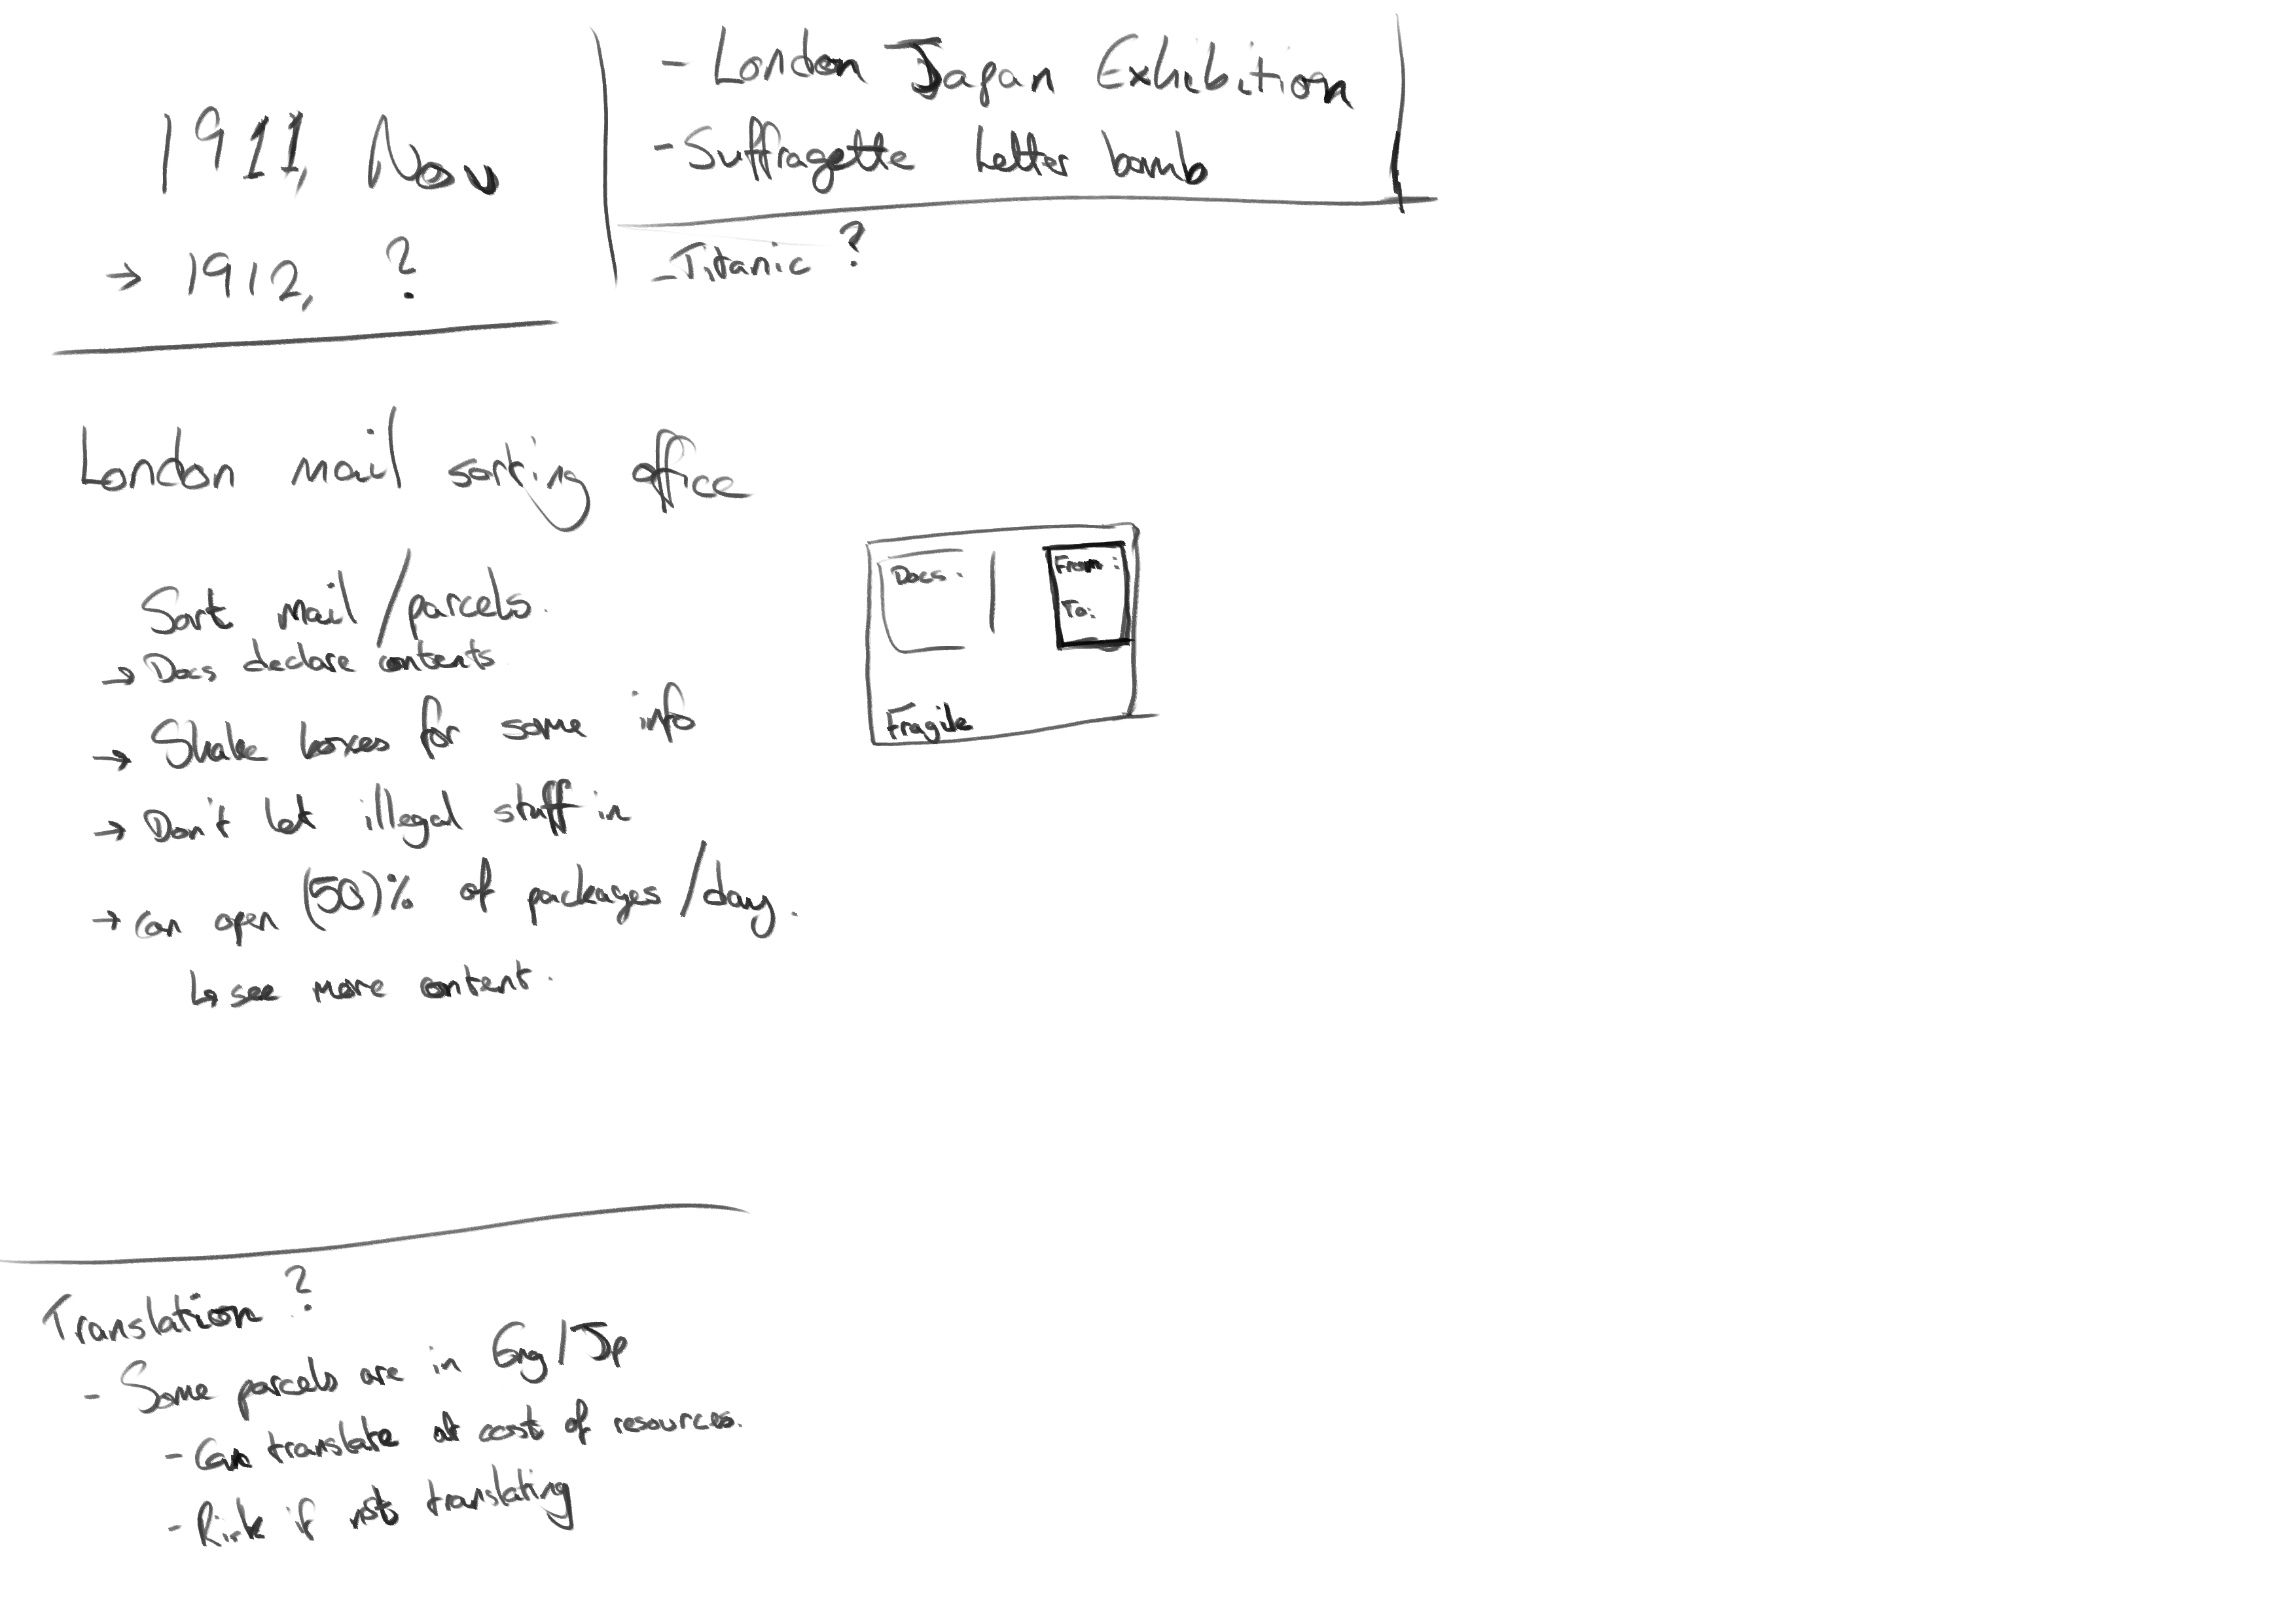 1911, Nov
→ 1912, ?
- London Japan Exhibition
- Suffragette letter bomb
- Titanic ?
London mail sorting office
Sort mail/parcels.
→ Docs declare contents
→ Shake boxes for some info
→ Don't let illegal stuff in
→ can open (50)% of packages/day.
↳ see more content.
Docs.
From:
To:
Fragile
Translation ?
- Some parcels are in Eng/Jp
- Can translate at cost of resources.
- Risk if not translating